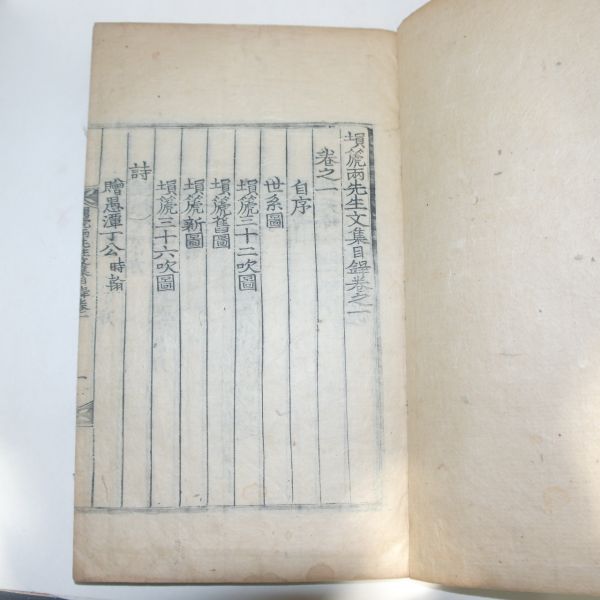 塤篪兩先生文集目錄卷之一
卷之一
自序
世系圖
塤篪三十二吹圖
塤篪舊圖
塤篪新圖
塤篪三十六吹圖
詩
贈愚潭丁公時翰
塤篪兩先生文集目錄卷一
一